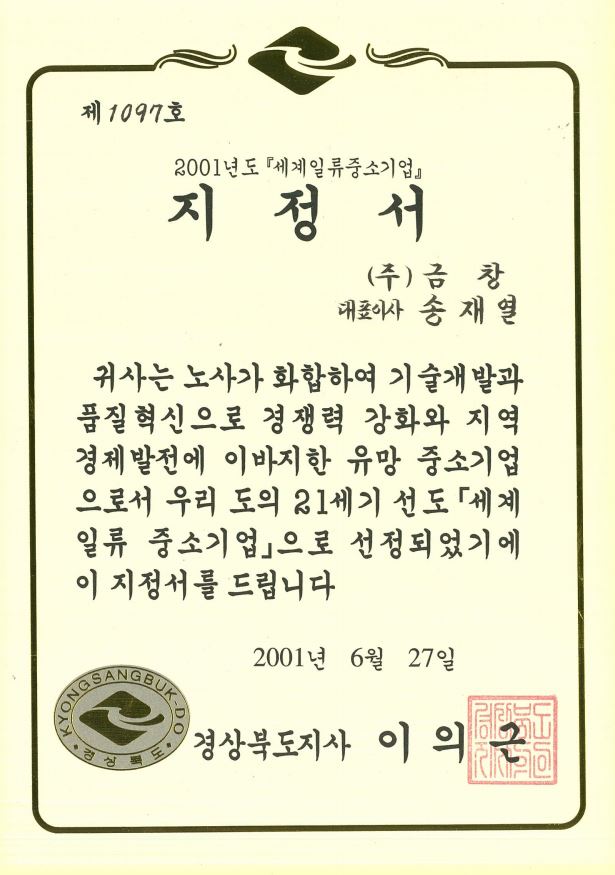 제1097호
2001년도『세계일류중소기업』
지 정 서
(주) 금 창
대표이사 송 재 열
귀사는 노사가 화합하여 기술개발과
품질혁신으로 경쟁력 강화와 지역
경제발전에 이바지한 유망 중소기업
으로서 우리 도의 21세기 선도「세계
일류 중소기업」으로 선정되었기에
이 지정서를 드립니다
2001년 6월 27일
KYONGSANGBUK-DO
경상북도
경상북도지사 이 의 근